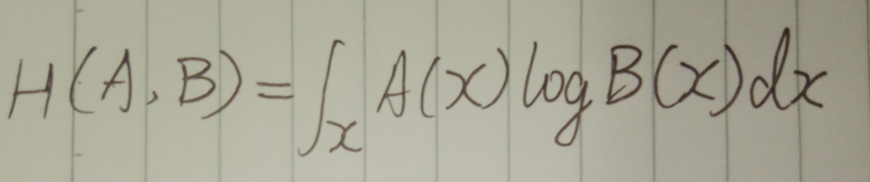 H(A, B) = ∫_x A(x) log B(x) dx